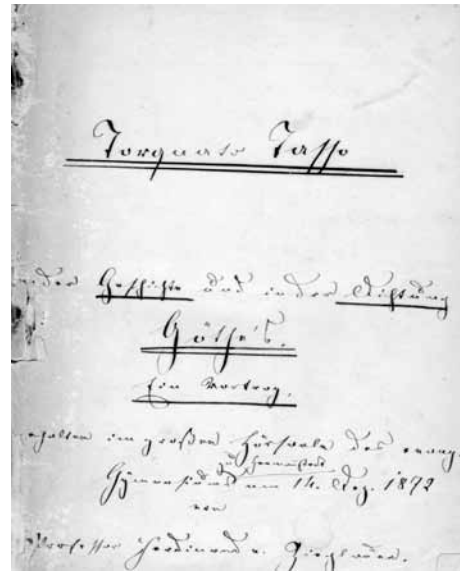 Torquato Tasso
in der Geschichte und in der Dichtung
Göthe's.
Ein Vortrag,
gehalten im großen Hörsaale des evang.
zu Hermannstadt
Gymnasiums am 14. Dez. 1872
von
Professor Ferdinand v. Zieglauer.